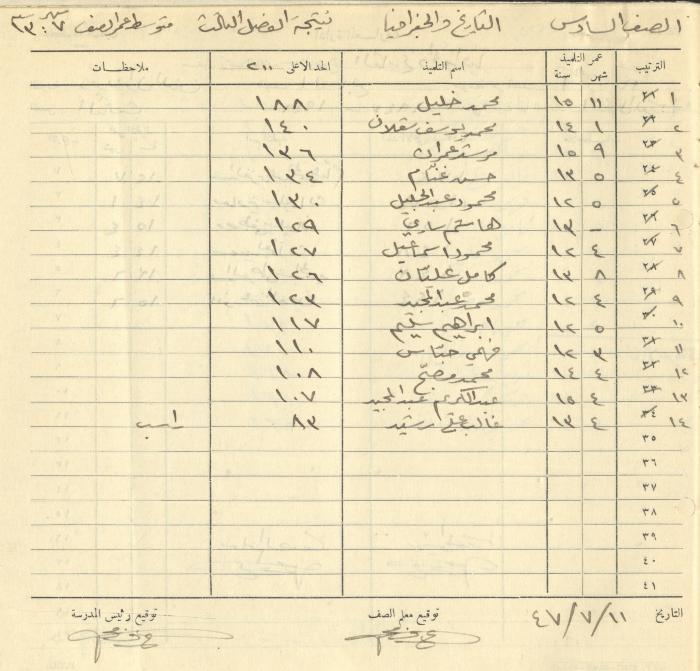 الصف السادس التاريخ والجغرافيا نتيجة الفصل الثالث متوسط عمر الصف ٧ : ١٣
الترتيب عمر التلميذ شهر سنة اسم التلميذ الحد الاعلى ٢٠٠ ملاحظات
١ ١١ ١٥ محمد خليل ١٨٨
٢ ١ ١٤ محمد يوسف شقلان ١٤٠
٣ ٩ ١٥ مرشد عمران ١٣٦
٤ ٥ ١٣ حسن غنّام ١٣٤
٥ ٥ ١٢ محمود عبد الجليل ١٣٠
٦ - ١٣ هاشم ساري ١٢٩
٧ ٤ ١٢ محمود اسماعيل ١٢٧
٨ ٨ ١٣ كامل عليّان ١٢٦
٩ ٤ ١٢ محمد عبد المجيد ١٢٣
١٠ ٥ ١٢ ابراهيم سليم ١١٧
١١ ٣ ١٢ فهمي حبّاس ١١٠
١٢ ٤ ١٤ محمد مفضّح ١٠٨
١٣ ٤ ١٥ عبد الكريم عبد المجيد ١٠٧
١٤ ٤ ١٣ غالب علي ارشيد ٨٣ راسب
٣٥
٣٦
٣٧
٣٨
٣٩
٤٠
٤١
التاريخ ١١/٧/٤٧ توقيع معلم الصف توقيع رئيس المدرسة